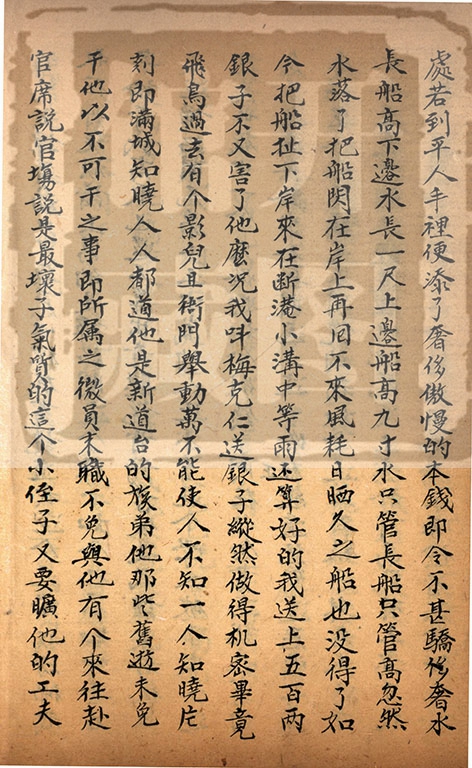 處若到平人手裡便添了奢侈傲慢的本錢即令不甚驕侈奢水
長船高下邊水長一尺上邊船高九寸水只管長船只管高忽然
水落了把船閃在岸上再回不來風耗日晒久之船也没得了如
今把船扯下岸來在断港小溝中等雨还算好的我送上五百两
銀子不又害了他麽况我呌梅克仁送銀子縱然做得机密畢竟
飛鳥過去有个影兒且衙門舉動萬不能使人不知一人知曉片
刻即滿城知曉人人都道他是新道台的族弟他那些舊遊未免
干他以不可干之事即所属之微員末職不免與他有个來往赴
官席説官塲説是最壞子氣質的這个小侄子又要曠他的工夫